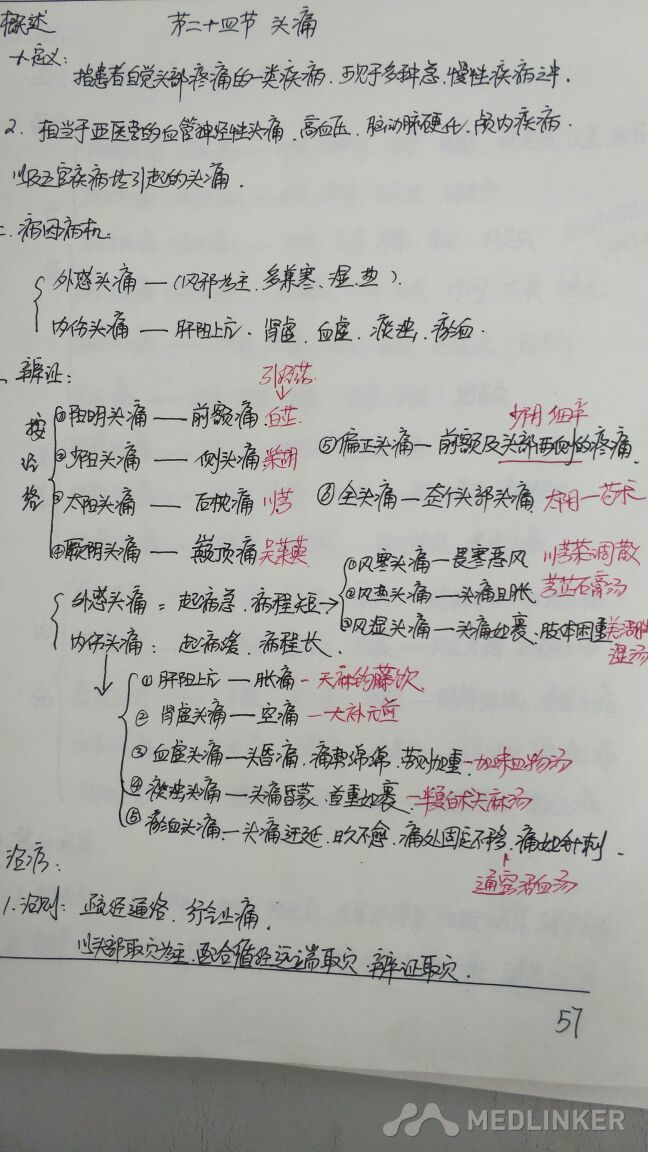 概述 第二十四节 头痛
1.定义:
指患者自觉头部疼痛的一类疾病.可见于多种急.慢性疾病之中.
2. 相当于西医学的血管神经性头痛.高血压.脑动脉硬化.颅内疾病.
以及五官疾病等引起的头痛.
二.病因病机:
外感头痛—(风邪为主.多兼寒.湿.热).
内伤头痛—肝阳上亢.肾虚.血虚.痰浊.瘀血.
辨证:
引经药
按经络
①阳明头痛—前额痛 白芷
②少阳头痛—侧头痛 柴胡
③太阳头痛—后枕痛 川芎
④厥阴头痛—巅顶痛 吴茱萸
少阴 细辛
⑤偏正头痛—前额及头部两侧的疼痛.
⑥全头痛—整个头部头痛 太阴—苍术
外感头痛:起病急.病程短→
①风寒头痛—畏寒恶风 川芎茶调散
②风热头痛—头痛且胀 芎芷石膏汤
③风湿头痛—头痛如裹.肢体困重 羌活胜湿汤
内伤头痛:起病缓.病程长.
①肝阳上亢—胀痛—天麻钩藤饮
②肾虚头痛—空痛—大补元煎
③血虚头痛—头昏痛.痛势绵绵.劳则加重—加味四物汤
④痰浊头痛—头痛昏蒙.首重如裹—半夏白术天麻汤
⑤瘀血头痛—头痛迁延.日久不愈.痛处固定不移.痛如针刺.
通窍活血汤
治疗:
1.治则:疏经通络.行气止痛.
以头部取穴为主.配合循经远端取穴.辨证取穴.
57
MEDLINKER